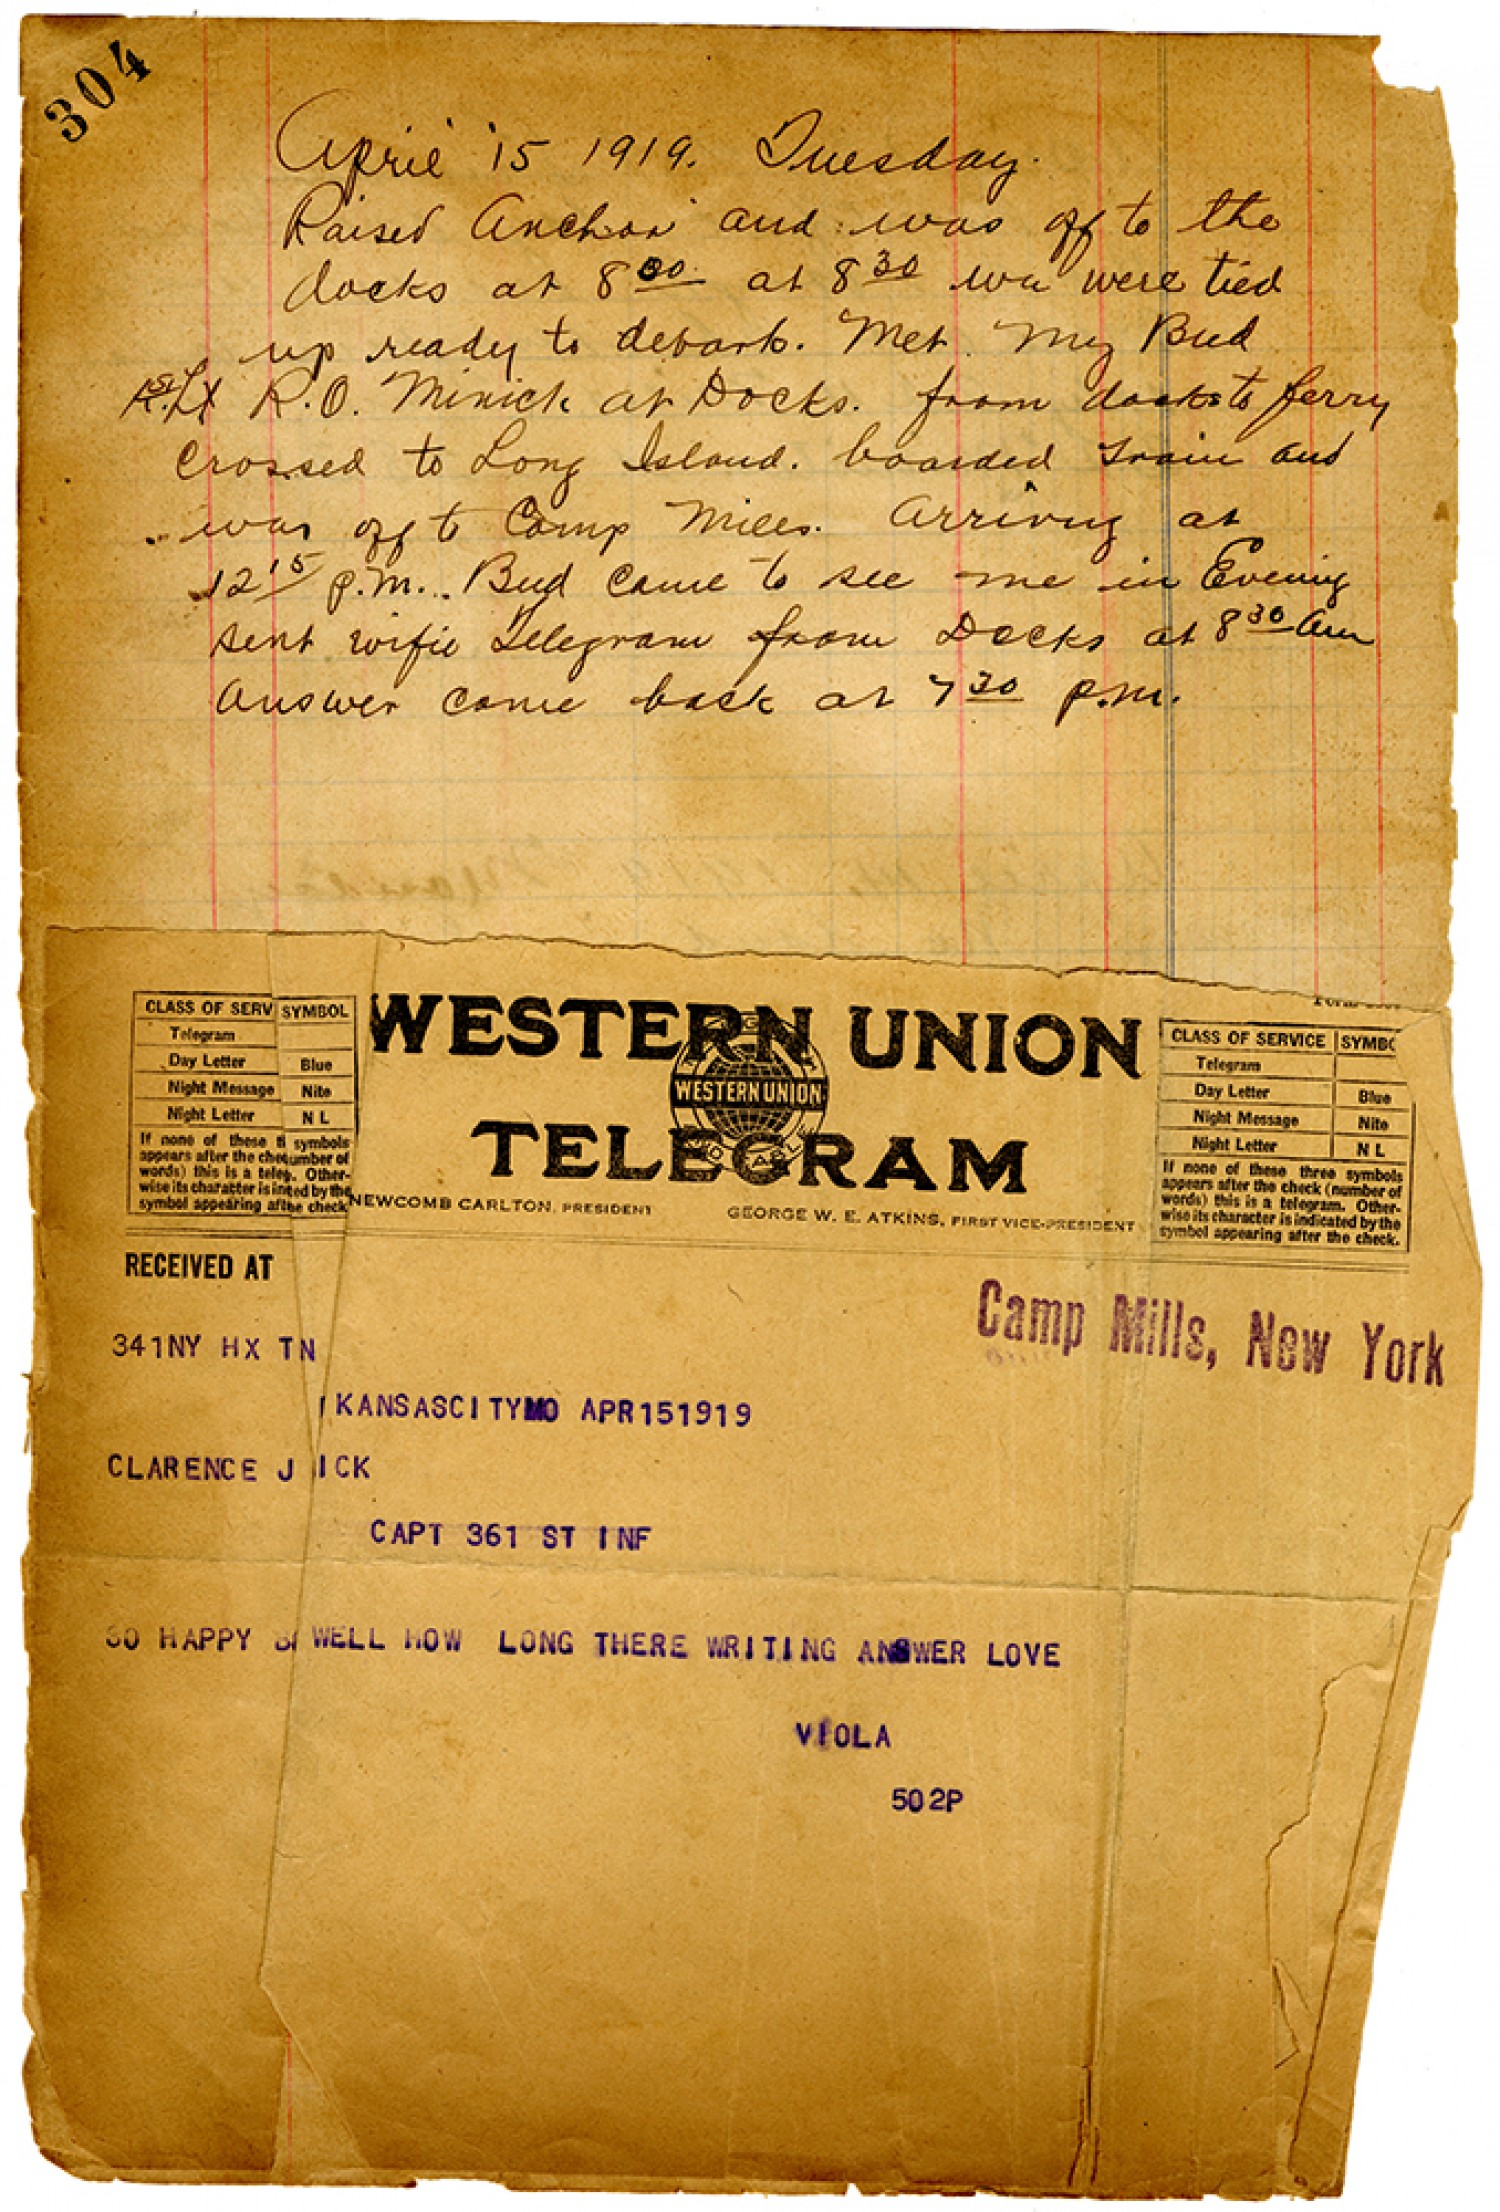 304
April 15 1919. Tuesday.
Raised Anchor and was off to the
docks at 8 00 at 8 30 we were tied
up ready to debark. Met My Bud
1st Lt R.O. Minick at Docks. from docks to ferry
crossed to Long Island. boarded train and
was off to Camp Mills. Arriving at
12 15 p.m. Bud came to see me in Evening
sent wifie Telegram from Docks at 8 30 am
answer came back at 7 30 p.m.
CLASS OF SERV SYMBOL
Telegram
Day Letter Blue
Night Message Nite
Night Letter N L
If none of these symbols
appears after the che umber of
words) this is a teleg. Other-
wise its character is in ed by the
symbol appearing after the check
WESTERN UNION
WESTERN UNION
TELEGRAM
NEWCOMB CARLTON, PRESIDENT GEORGE W. E. ATKINS, FIRST VICE-PRESIDENT
CLASS OF SERVICE SYMBO
Telegram
Day Letter Blue
Night Message Nite
Night Letter N L
If none of these three symbols
appears after the check (number of
words) this is a telegram. Other-
wise its character is indicated by the
symbol appearing after the check.
RECEIVED AT
Camp Mills, New York
341NY HX TN
KANSASCITYMO APR151919
CLARENCE J ICK
CAPT 361 ST INF
SO HAPPY WELL HOW LONG THERE WRITING ANSWER LOVE
VIOLA
502P